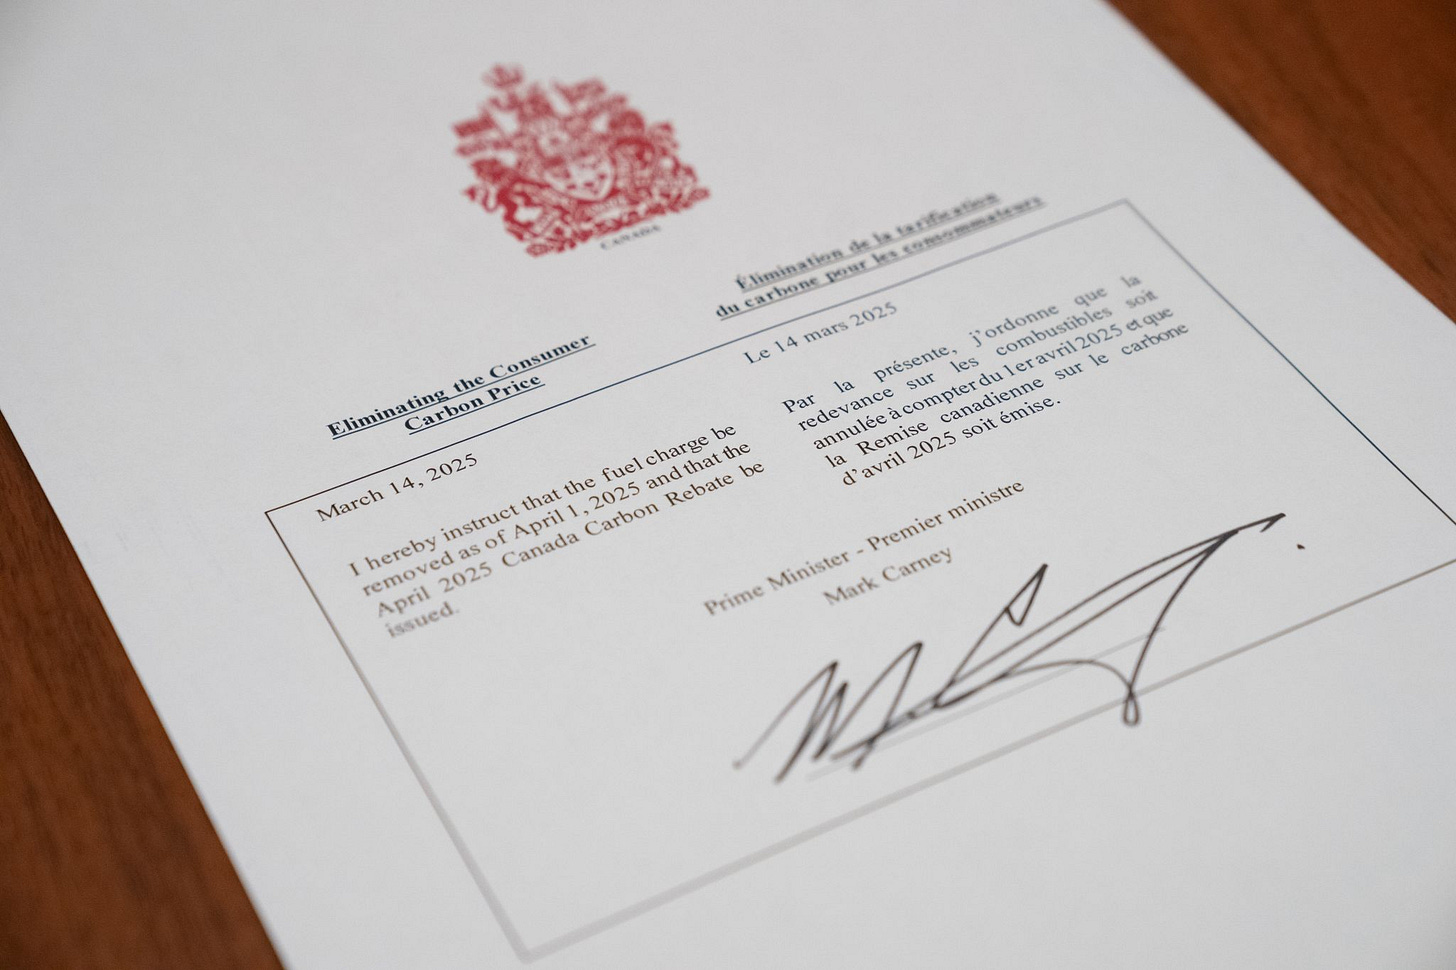 CANADA
Eliminating the Consumer
Carbon Price
March 14, 2025
I hereby instruct that the fuel charge be
removed as of April 1, 2025 and that the
April 2025 Canada Carbon Rebate be
issued.
Élimination de la tarification
du carbone pour les consommateurs
Le 14 mars 2025
Par la présente, j’ordonne que la
redevance sur les combustibles soit
annulée à compter du 1er avril 2025 et que
la Remise canadienne sur le carbone
d’avril 2025 soit émise.
Prime Minister - Premier ministre
Mark Carney